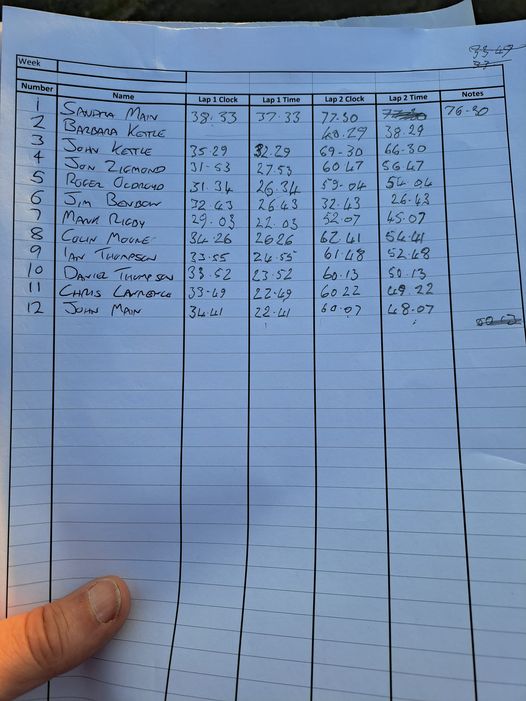 Week
Number Name Lap 1 Clock Lap 1 Time Lap 2 Clock Lap 2 Time Notes
1 Sandra Main 38.33 37.33 77.30 76-30
2 Barbara Kettle 40.29 38.29
3 John Kettle 35.29 32.29 69-30 66.30
4 Jon Zigmond 31-53 27.53 60.47 56.47
5 Roger Oldroyd 31.34 26.34 59-04 54.04
6 Jim Benbow 32.43 26.43 32.43 26.43
7 Mark Rigby 29.03 22.03 52.07 45.07
8 Colin Moore 34.26 26 26 62.41 54.41
9 Ian Thompson 33.55 24.55 61.48 52.48
10 Daniel Thompson 33.52 23.52 60.13 50.13
11 Chris Lawrence 33-49 22.49 60 22 49.22
12 John Main 34.41 22.41 60.07 48.07